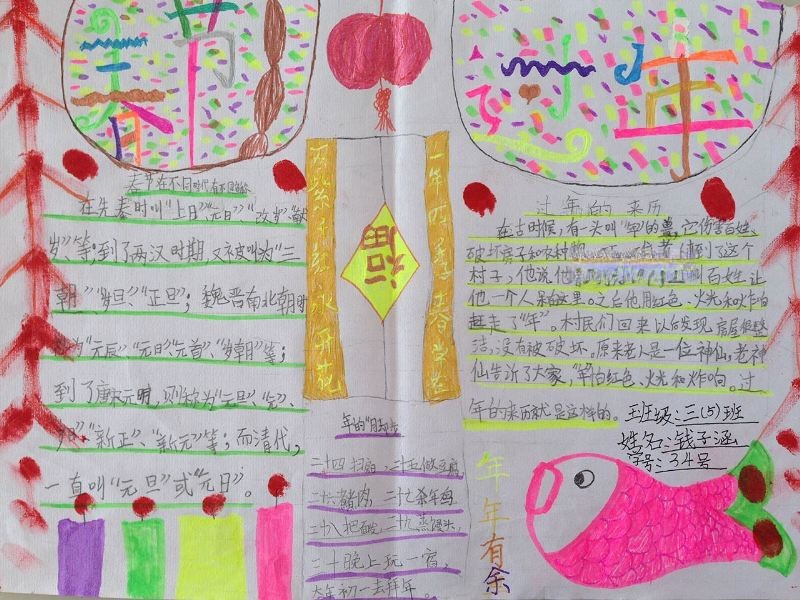 春节
春节在不同时代有不同名称
在先秦时叫“上日”、“元日”、“改岁”、献
岁”等;到了两汉时期,又被叫为“三
朝”、“岁旦”、“正旦”;魏晋南北朝时
为“元辰”、“元日”、“元首”、“岁朝”等;
到了唐宋元明,则称为“元旦”、“元”、
“新正”、“新元”等;而清代,
一直叫“元旦”或“元日”。
万紫千红永开花
福
一年四季春常在
年的
二十四扫 二十五做豆腐
二十六 猪肉,二十七杀年鸡
二十八把面发,二十九蒸馒头,
三十晚上玩一宿,
大年初一去拜年。
过年的来历
在古时候,有一头叫“年”的兽,它伤害百姓、
破坏房子和农村 到了这个
村子,他说 百姓,让
他一个人呆在这里。之后他用红色、火光和炸响
赶走了“年”。村民们回来以后发现,房屋很整
洁,没有被破坏。原来老人是一位神仙,老神
仙告诉了大家,“年”怕红色、火光和炸响。过
年的来历就是这样的。
班级:三(5)班
姓名:钱子涵
学号:34号
年年有余